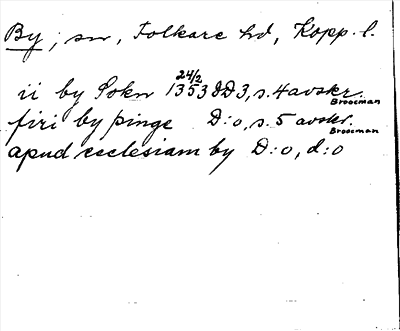 By; sn, Folkare hd, Kopp. l.
ii by Sokn 1353 24/2 DD3, s. 4 avskr. Brocman
firi by þinge D:o, s. 5 avskr. Brocman
apud ecclesiam by D:o, d:o